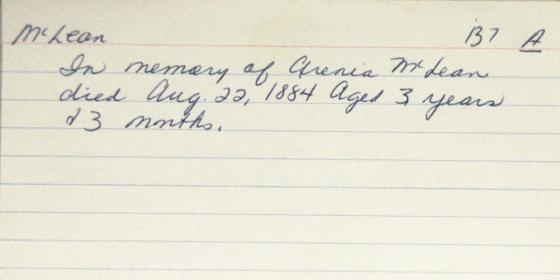 McLean B7 A
In memory of Arenia McLean
died Aug. 22, 1884 Aged 3 years
& 3 months.